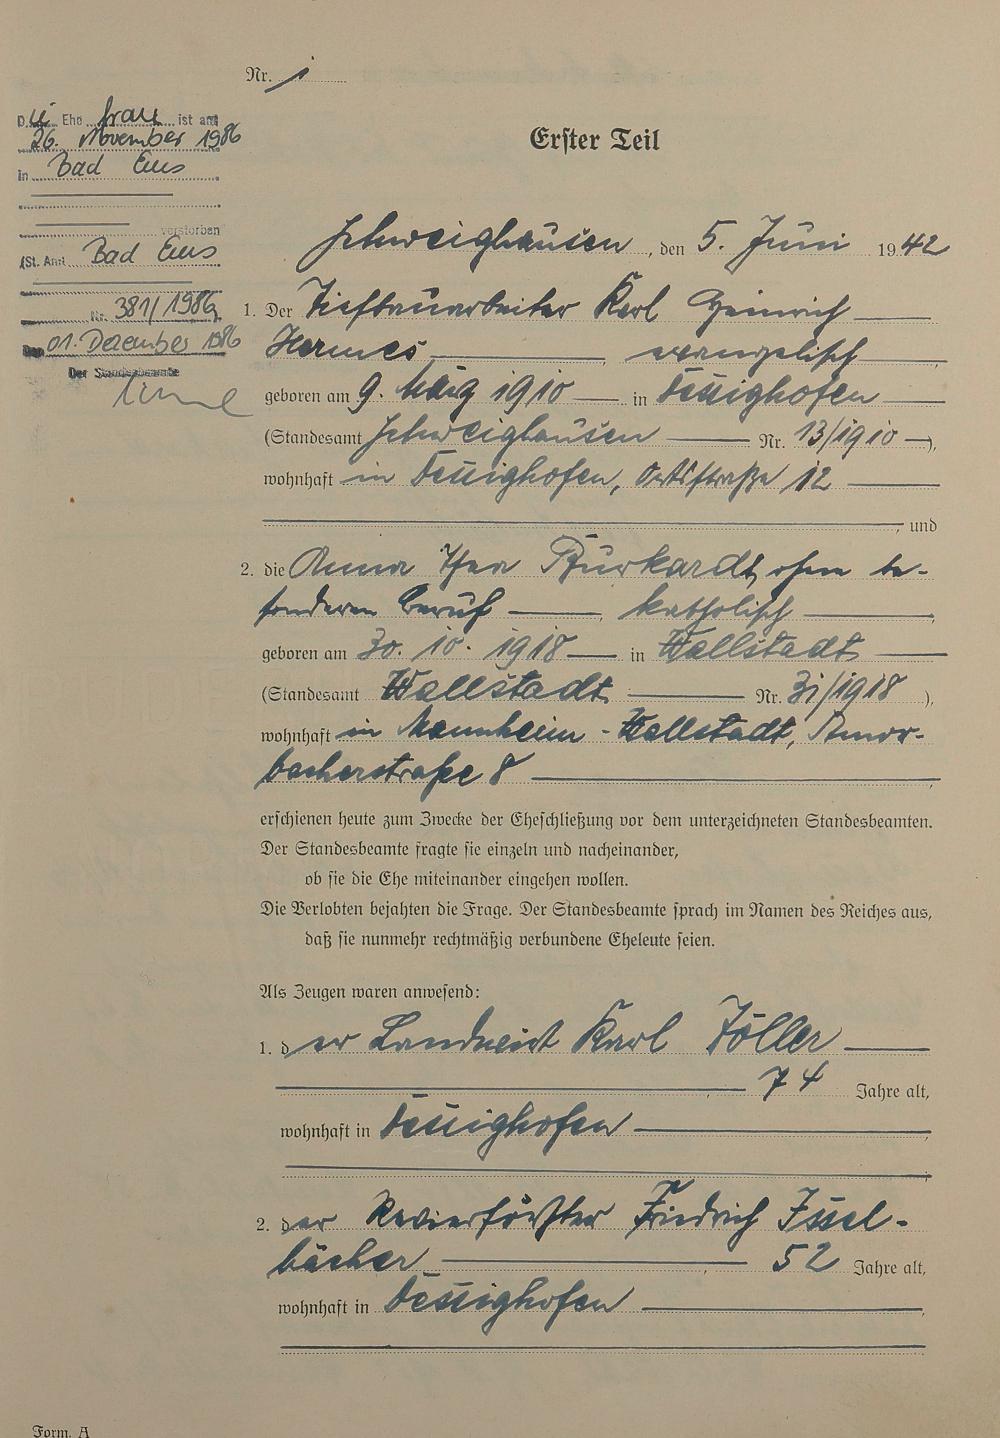 Nr. 1
Die Ehefrau ist am
26. November 1986
in Bad Ems
verstorben
(St. Amt Bad Ems
Nr. 381/1986)
Den 01. Dezember 1986
Der Standesbeamte
Erster Teil
Schweighausen, den 5. Juni 1942
1. Der Tiefbauarbeiter Karl Heinrich
Hermes evangelisch
geboren am 9. März 1910 in Dessighofen
(Standesamt Schweighausen Nr. 13/1910),
wohnhaft in Dessighofen, Ortsstraße 12
und
2. die Anna Thea Burkardt, ohne be-
sonderen Beruf, katholisch
geboren am 30. 10. 1918 in Wallstadt
(Standesamt Wallstadt Nr. 31/1918),
wohnhaft in Mannheim-Wallstadt, Amor-
bacherstraße 8
erschienen heute zum Zwecke der Eheschließung vor dem unterzeichneten Standesbeamten.
Der Standesbeamte fragte sie einzeln und nacheinander,
ob sie die Ehe miteinander eingehen wollen.
Die Verlobten bejahten die Frage. Der Standesbeamte sprach im Namen des Reiches aus,
daß sie nunmehr rechtmäßig verbundene Eheleute seien.
Als Zeugen waren anwesend:
1. der Landwirt Karl Föller
74 Jahre alt,
wohnhaft in Dessighofen
2. der Revierförster Friedrich Issel-
bächer, 52 Jahre alt,
wohnhaft in Dessighofen
Form. A